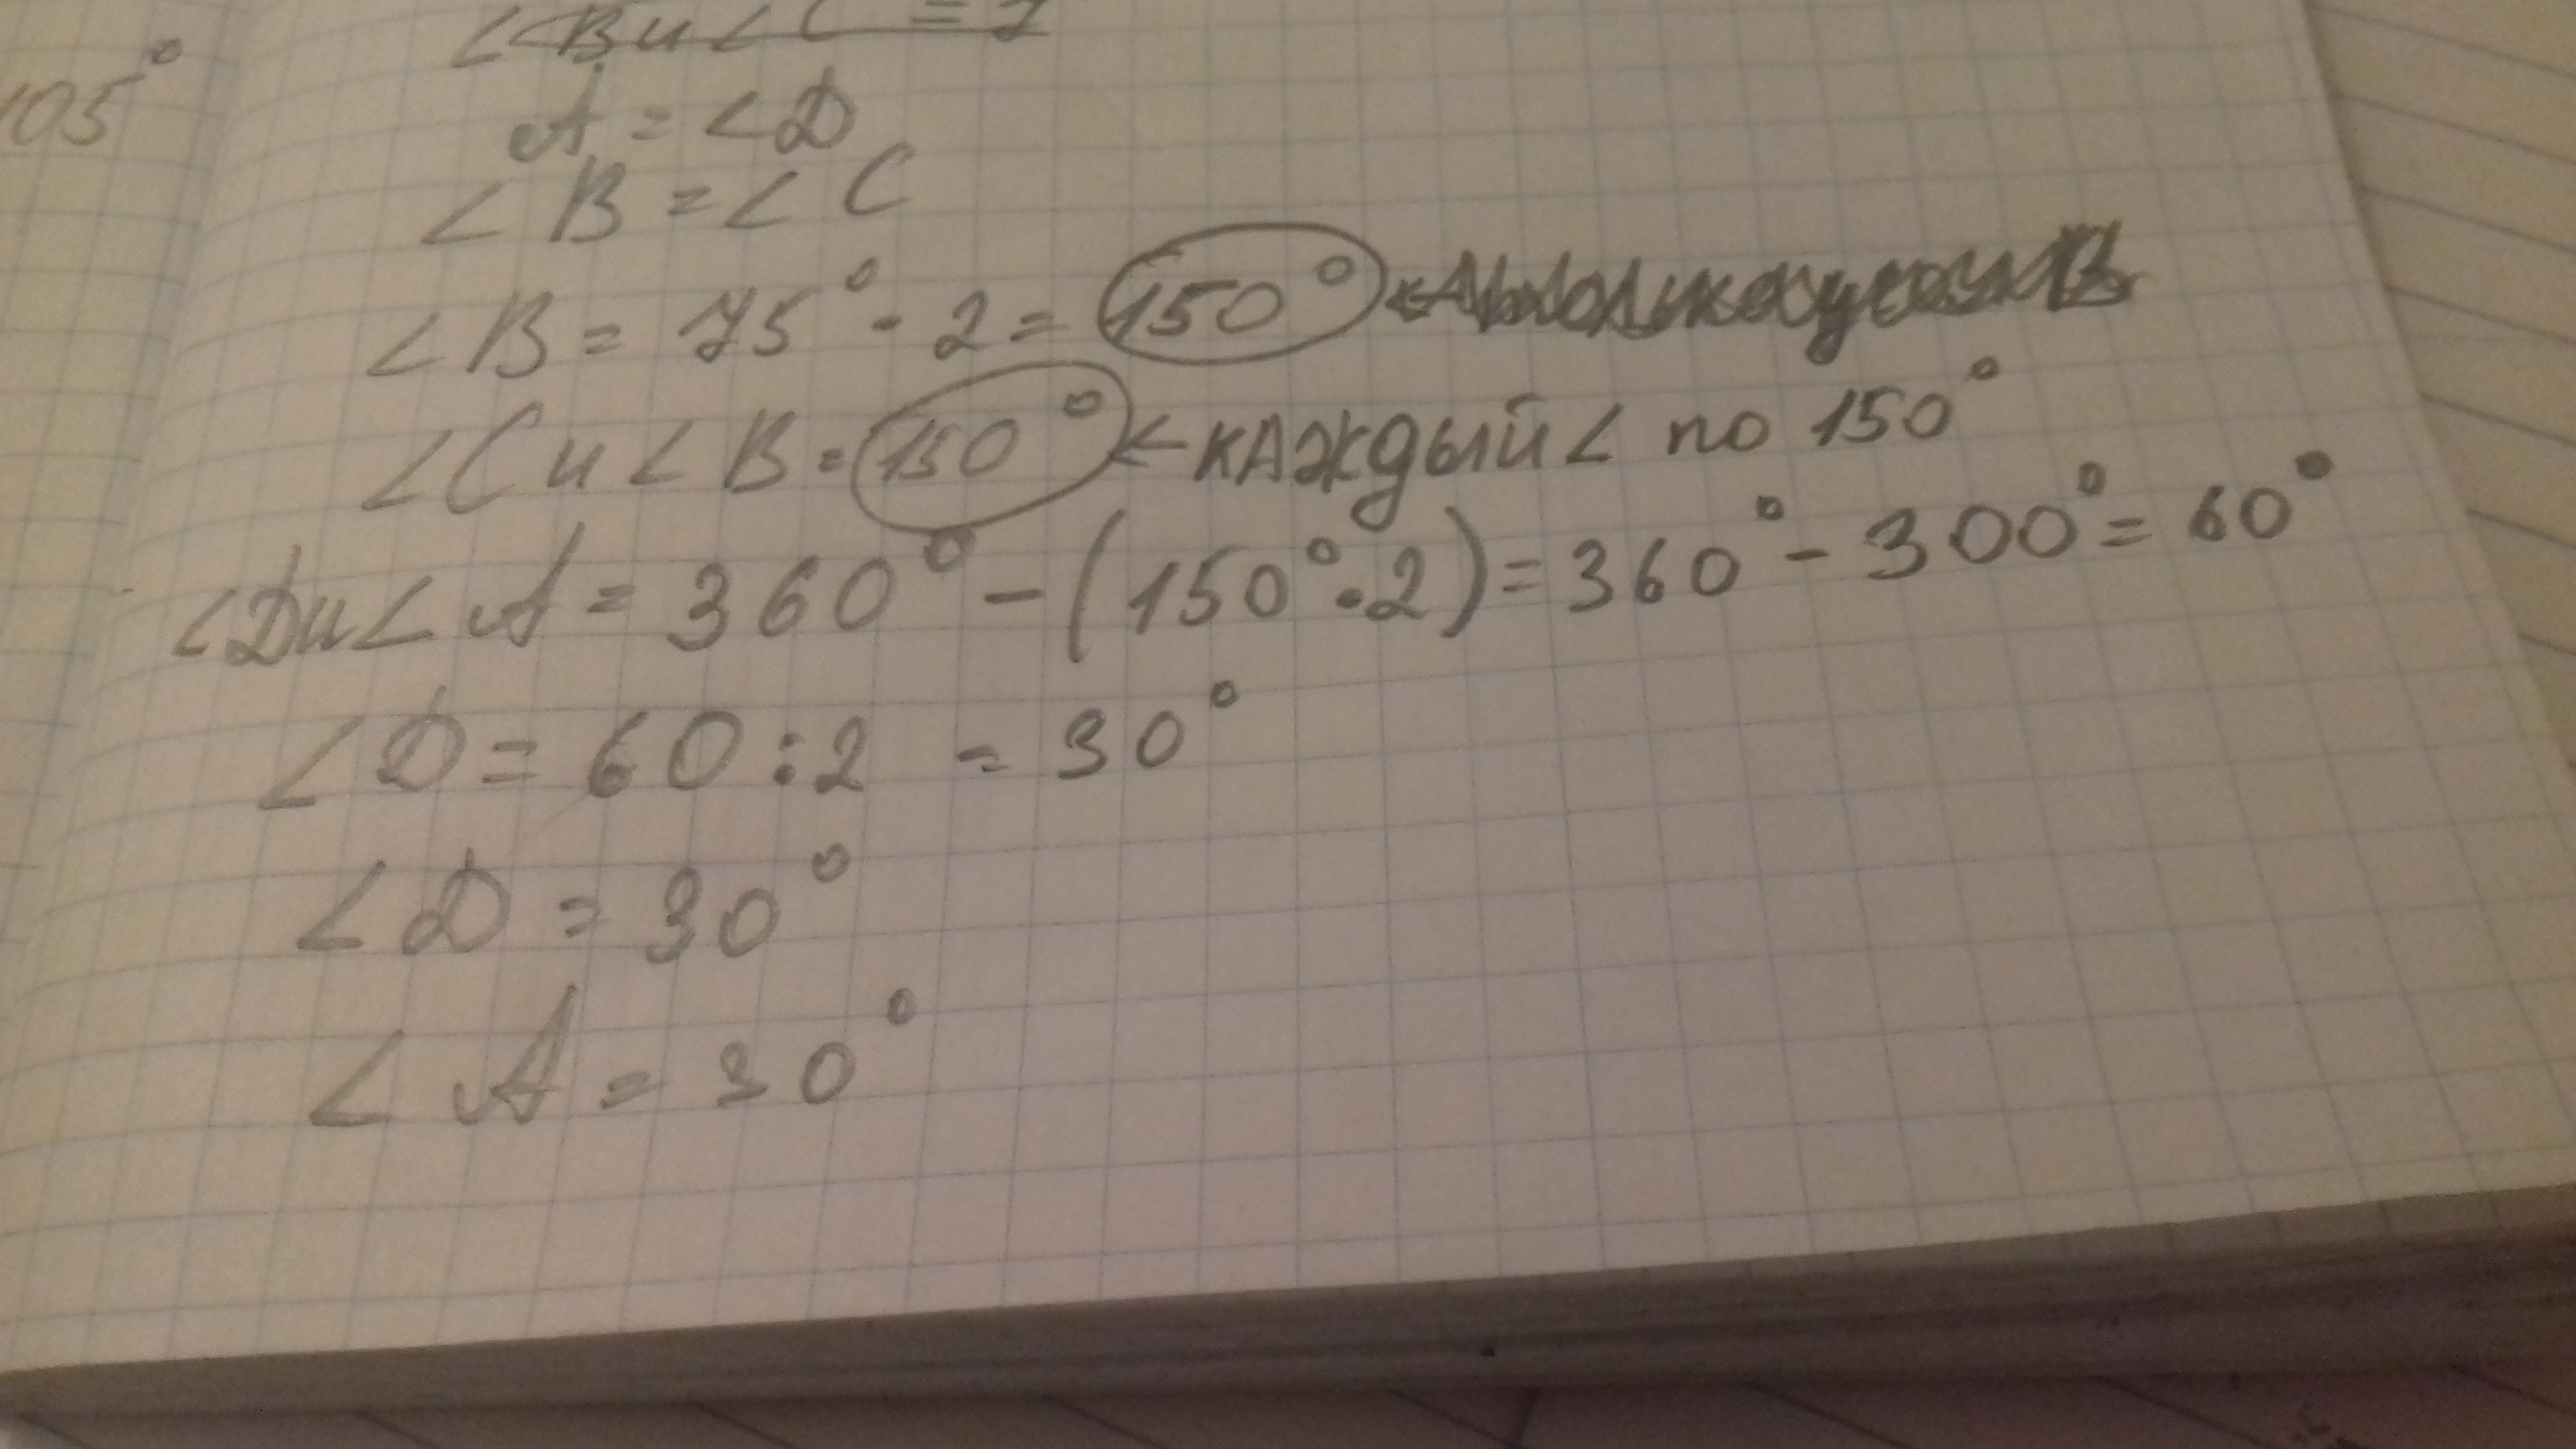 105°
∠B и ∠C =
A = ∠D
∠B = ∠C
∠B = 75° · 2 = 150° ←
∠C и ∠B = 150° ← каждый ∠ по 150°
∠D и ∠A = 360° - (150° · 2) = 360° - 300° = 60°
∠D = 60 : 2 = 30°
∠D = 30°
∠A = 30°